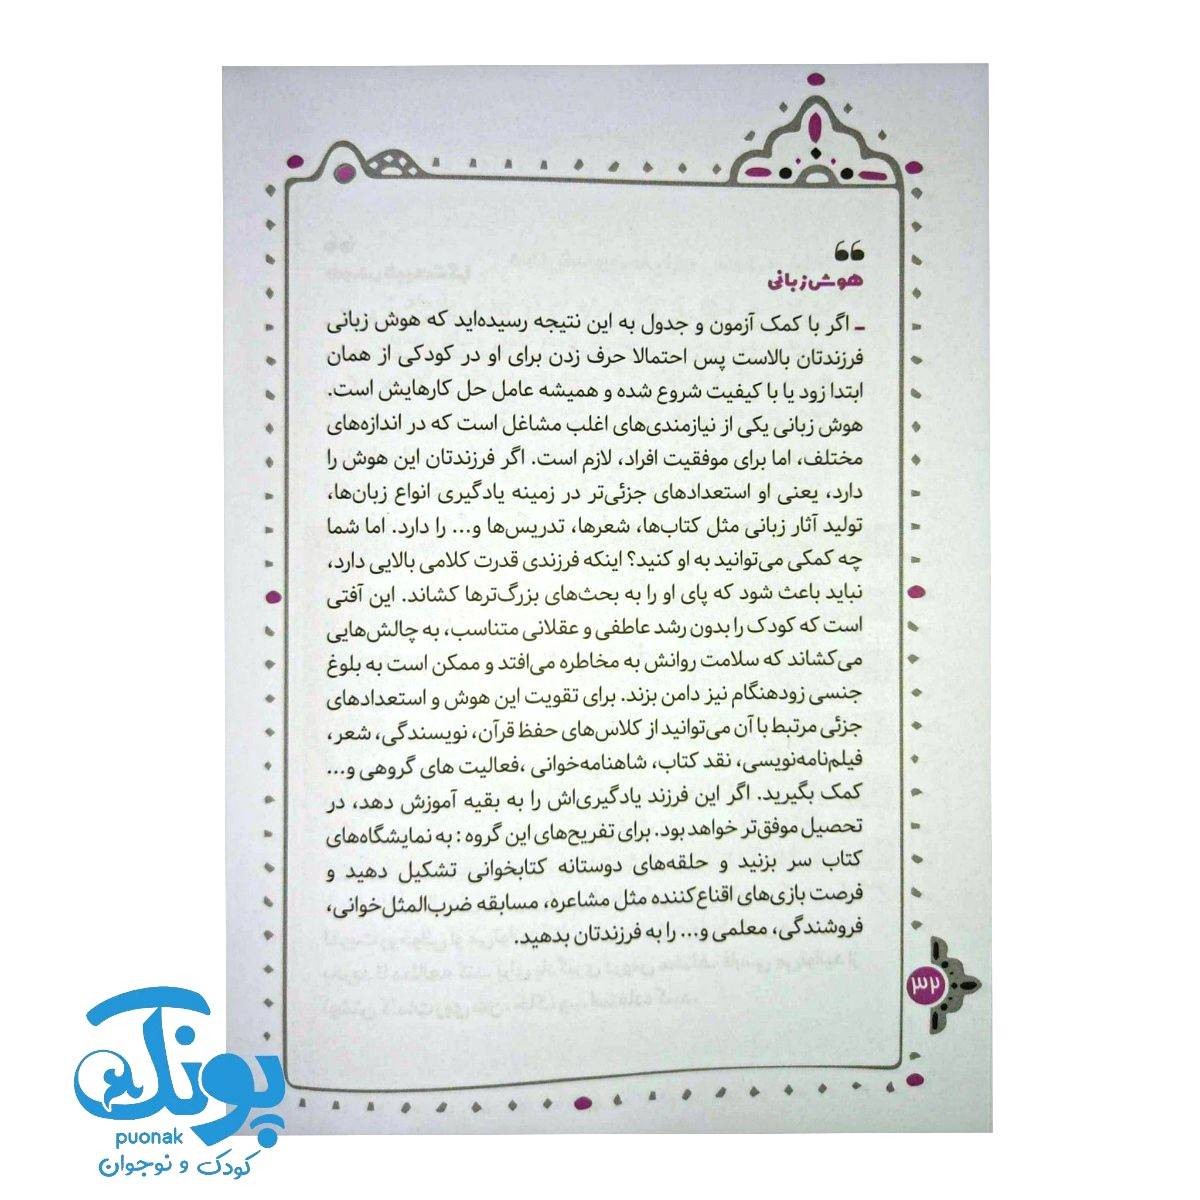 هوش زبانی
ـ اگر با کمک آزمون و جدول به این نتیجه رسیده‌اید که هوش زبانی
فرزندتان بالاست پس احتمالا حرف زدن برای او در کودکی از همان
ابتدا زود یا با کیفیت شروع شده و همیشه عامل حل کارهایش است.
هوش زبانی یکی از نیازمندی‌های اغلب مشاغل است که در اندازه‌های
مختلف، اما برای موفقیت افراد، لازم است. اگر فرزندتان این هوش را
دارد، یعنی او استعدادهای جزئی‌تر در زمینه یادگیری انواع زبان‌ها،
تولید آثار زبانی مثل کتاب‌ها، شعرها، تدریس‌ها و... را دارد. اما شما
چه کمکی می‌توانید به او کنید؟ اینکه فرزندی قدرت کلامی بالایی دارد،
نباید باعث شود که پای او را به بحث‌های بزرگ‌ترها کشاند. این آفتی
است که کودک را بدون رشد عاطفی و عقلانی متناسب، به چالش‌هایی
می‌کشاند که سلامت روانش به مخاطره می‌افتد و ممکن است به بلوغ
جنسی زودهنگام نیز دامن بزند. برای تقویت این هوش و استعدادهای
جزئی مرتبط با آن می‌توانید از کلاس‌های حفظ قرآن، نویسندگی، شعر،
فیلم‌نامه‌نویسی، نقد کتاب، شاهنامه‌خوانی ،فعالیت های گروهی و...
کمک بگیرید. اگر این فرزند یادگیری‌اش را به بقیه آموزش دهد، در
تحصیل موفق‌تر خواهد بود. برای تفریح‌های این گروه : به نمایشگاه‌های
کتاب سر بزنید و حلقه‌های دوستانه کتابخوانی تشکیل دهید و
فرصت بازی‌های اقناع‌کننده مثل مشاعره، مسابقه ضرب‌المثل‌خوانی،
فروشندگی، معلمی و... را به فرزندتان بدهید.
۳۲
پونک
puonak
کودک و نوجوان